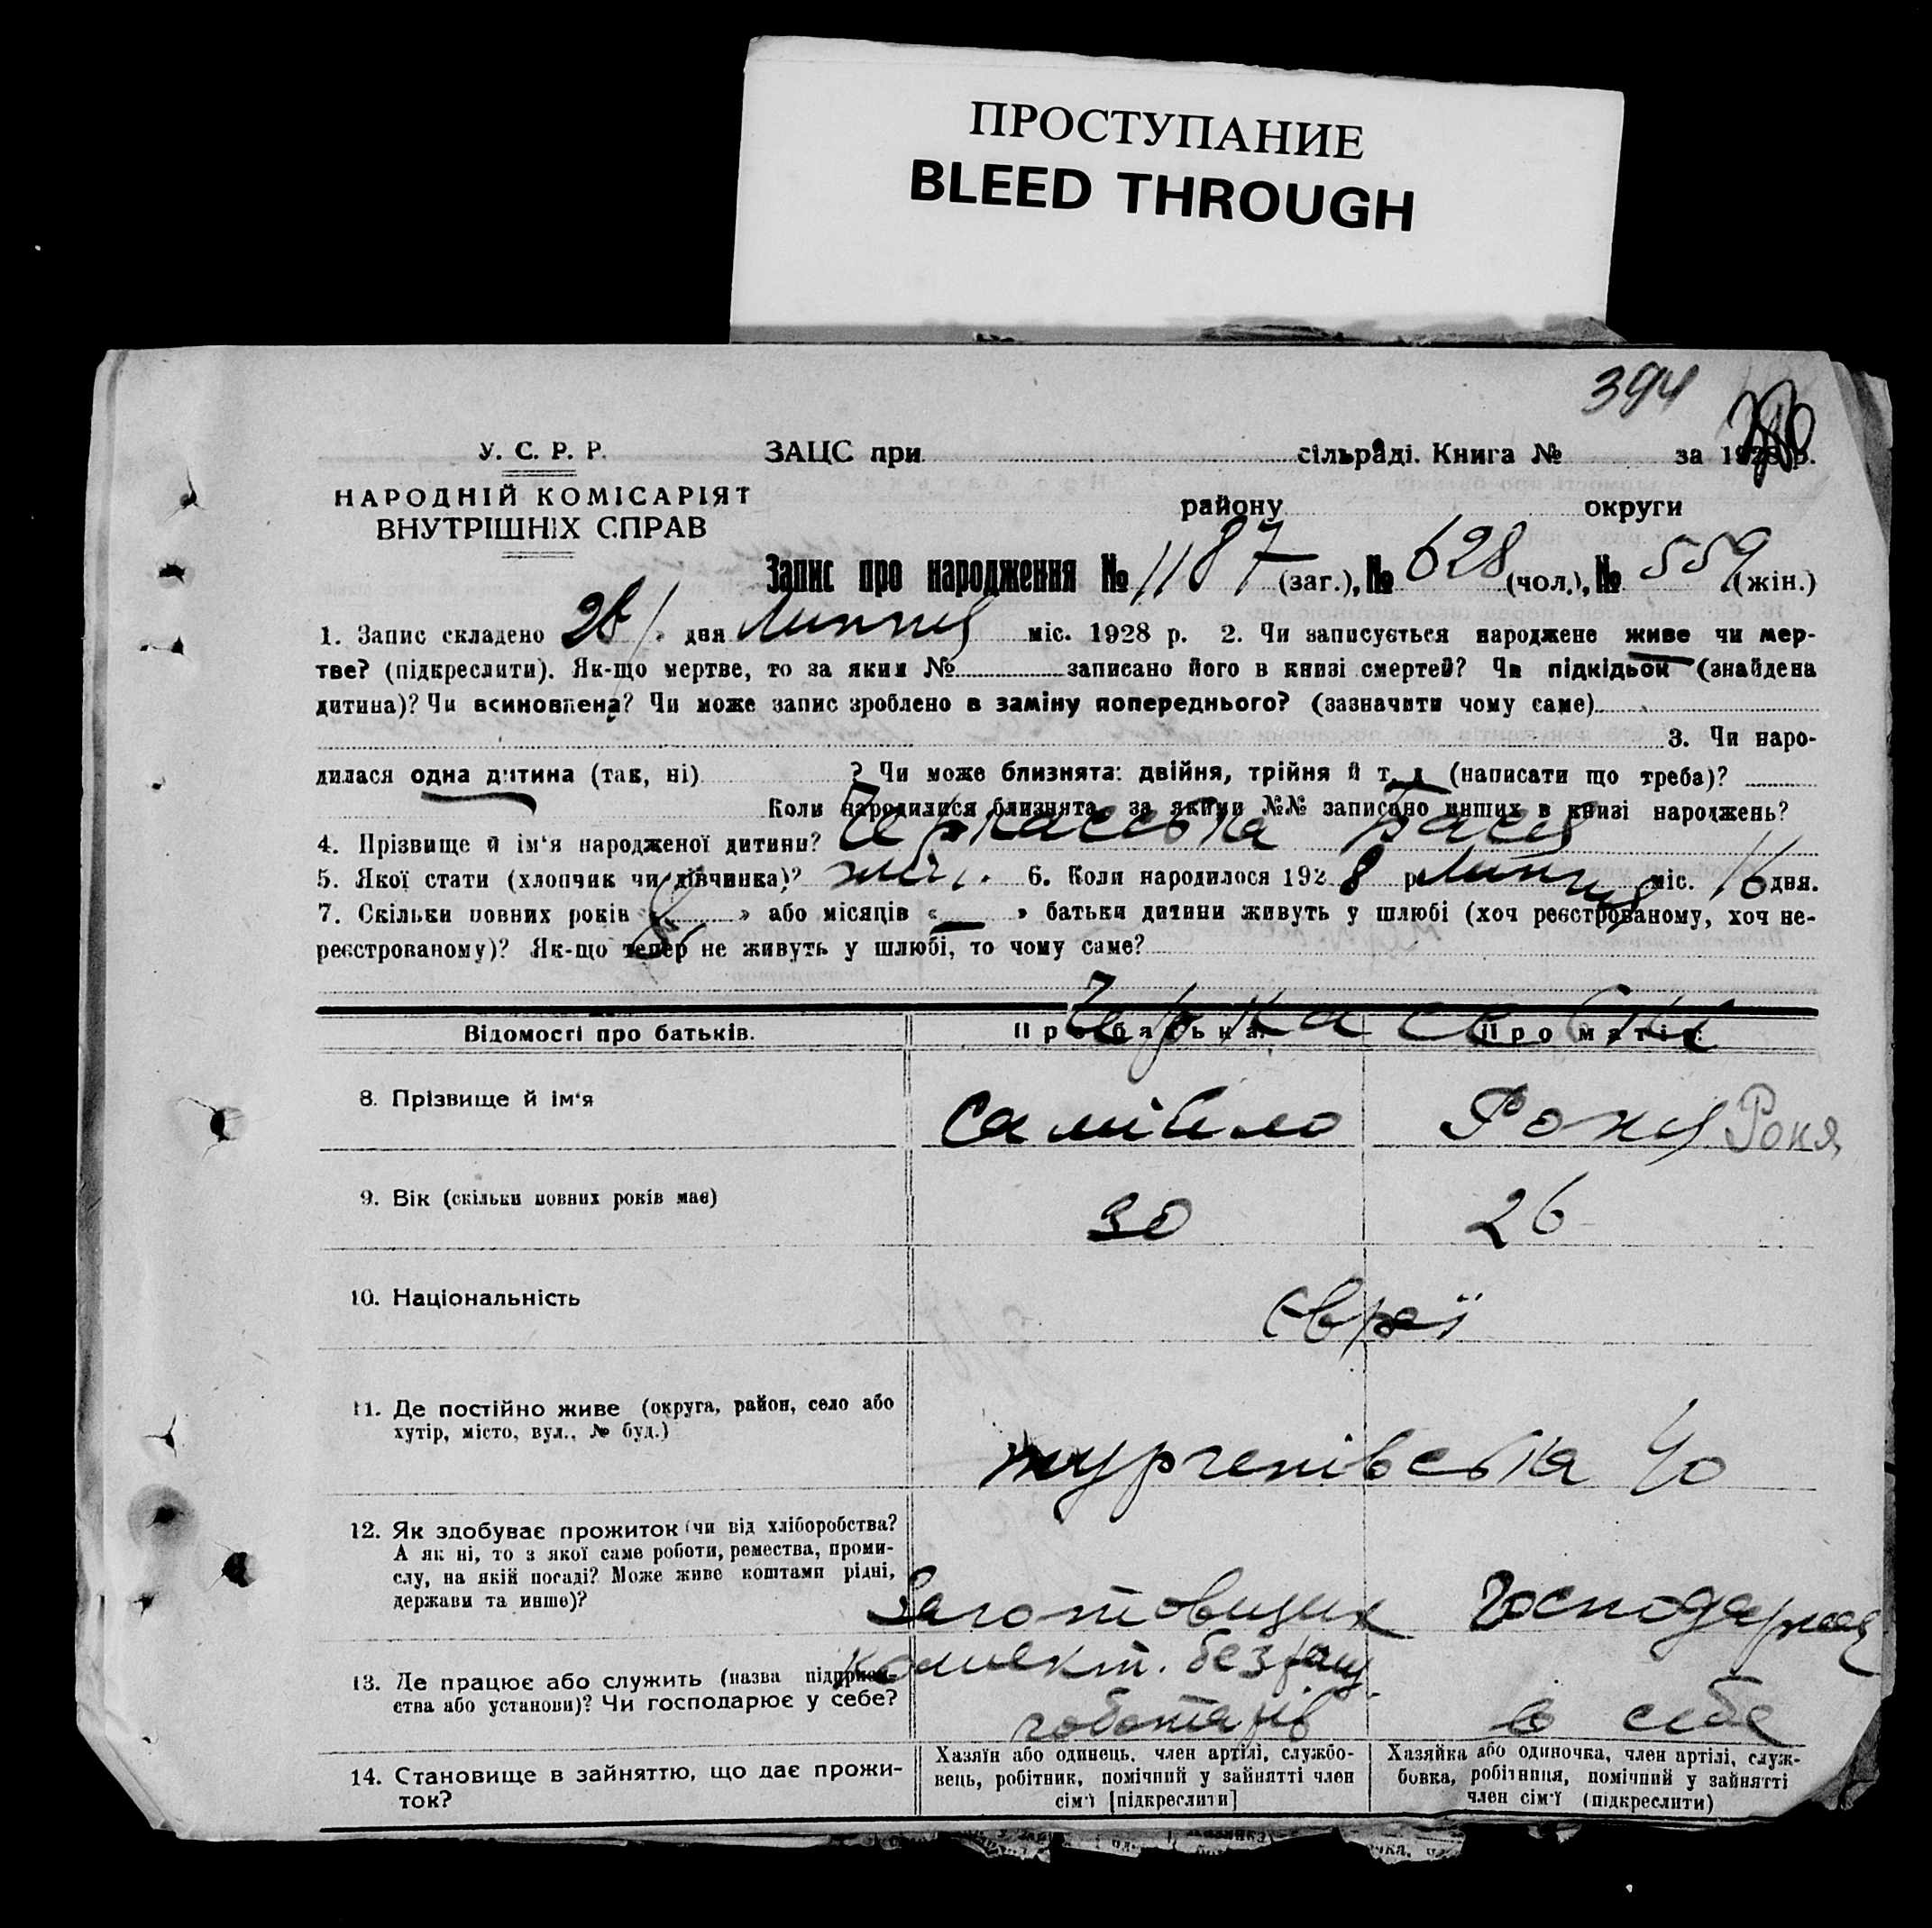 ПРОСТУПАНИЕ
BLEED THROUGH
394
У. С. Р. Р.
ЗАЦС при сільраді. Книга № за 1928 р.
НАРОДНІЙ КОМІСАРІЯТ
ВНУТРІШНІХ СПРАВ
району округи
Запис про народження № 1187 (заг.), № 628 (чол.), № 559 (жін.)
1. Запис складено 28 » дня Липня міс. 1928 р. 2. Чи записується народжене живе чи мер-
тве? (підкреслити). Як-що мертве, то за яким № записано його в книзі смертей? Чи підкідьок (знайдена
дитина)? Чи всиновлена? Чи може запис зроблено в заміну попереднього? (зазначити чому саме)
3. Чи наро-
дилася одна дитина (так, ні) ? Чи може близнята: двійня, трійня й т. д (написати що треба)?
Коли народилися близнята, за якими №№ записано инших в книзі народжень?
4. Прізвище й ім‘я народженої дитини? Черкаська Бася
5. Якої стати (хлопчик чи дівчинка)? жін. 6. Коли народилося 1928 р. Липня міс. 16 дня.
7. Скільки повних років « » або місяців « — » батьки дитини живуть у шлюбі (хоч реєстрованому, хоч не-
реєстрованому)? Як-що тепер не живуть у шлюбі, то чому саме?
Черкаські
Відомості про батьків. Про батька. Про матір.
8. Прізвище й ім‘я Самійло Роня Роня
9. Вік (скільки повних років має) 30 26
10. Національність євреї
11. Де постійно живе (округа, район, село або
хутір, місто, вул., № буд.)
тургенівська 40
12. Як здобуває прожиток (чи від хліборобства?
А як ні, то з якої саме роботи, ремества, проми-
слу, на якій посаді? Може живе коштами рідні,
держави та инше)?
Заготовщик Господарка
13. Де працює або служить (назва підприєм-
ства або установи)? Чи господарює у себе?
Колект. безроб.
чоботарів в себе
14. Становище в зайняттю, що дає прожи-
ток?
Хазяїн або одинець, член артілі, службо-
вець, робітник, помічний у зайнятті член
сім‘ї [підкреслити]
Хазяйка або одиночка, член артілі, служ-
бовка, робітниця, помічний у зайнятті
член сім‘ї (підкреслити)